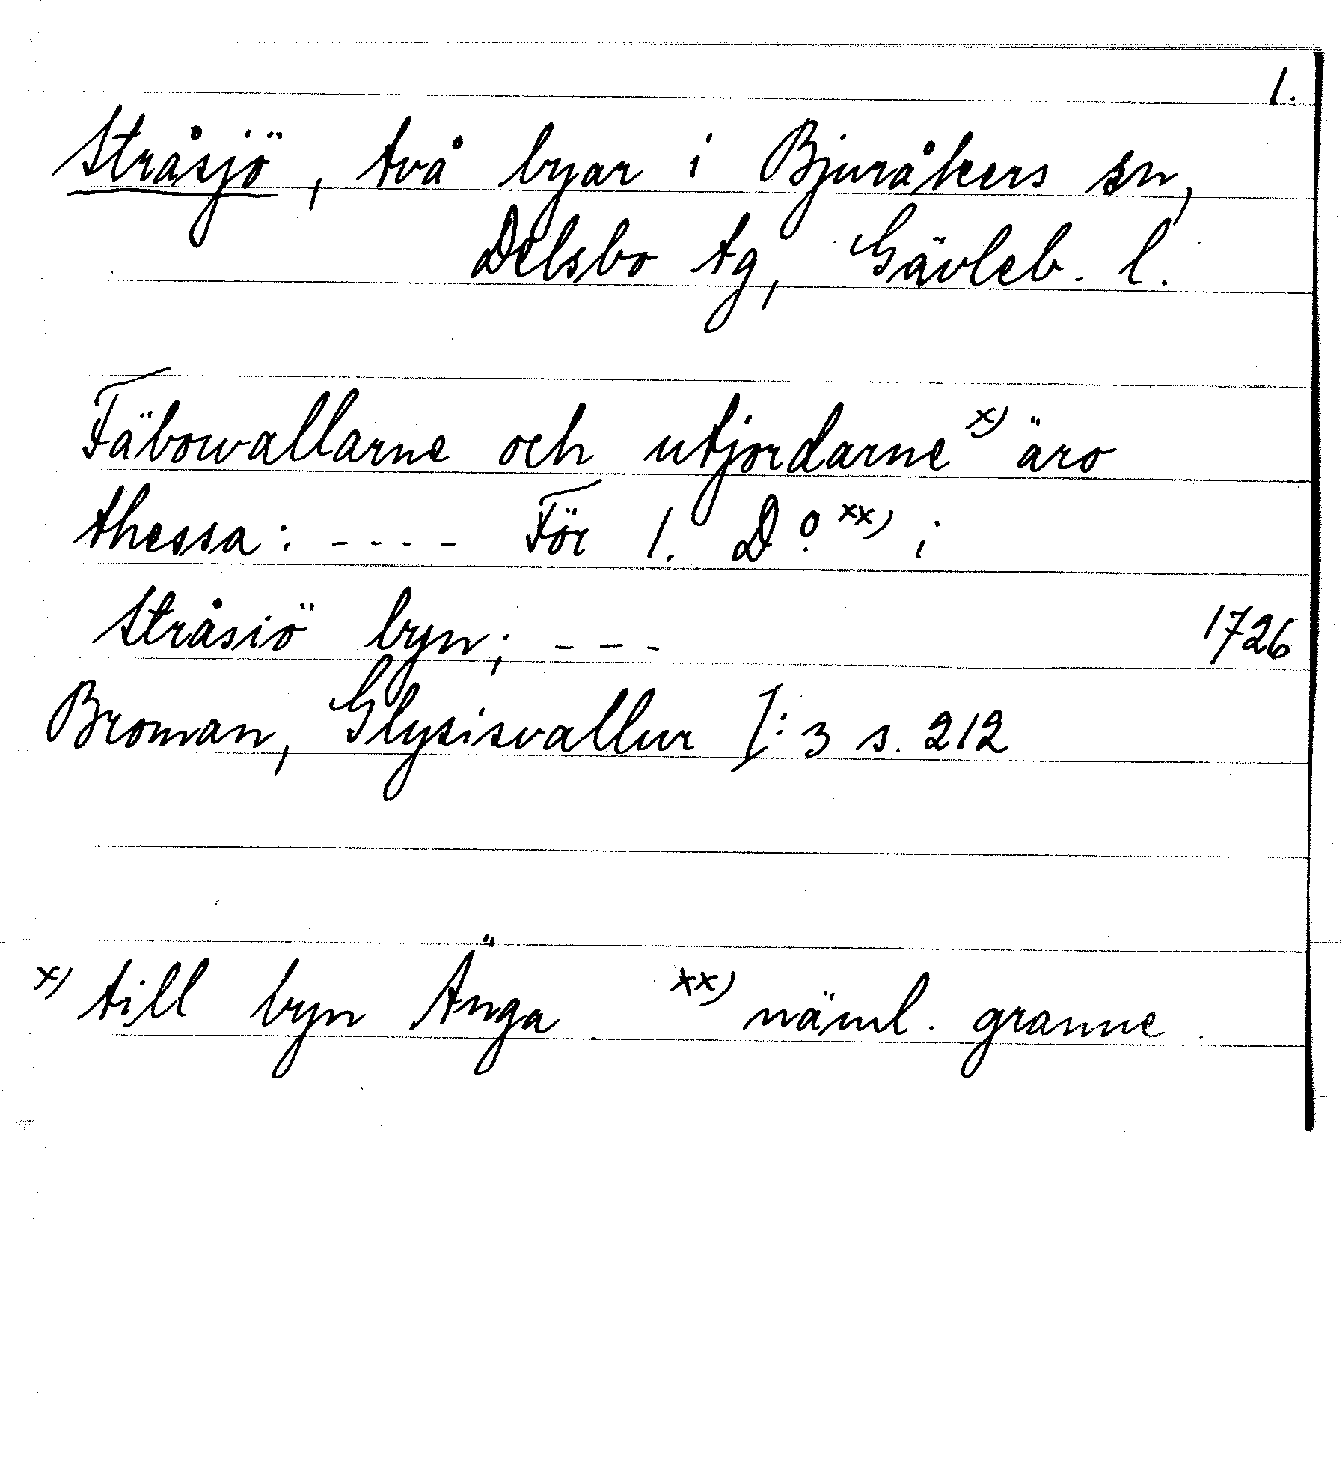 1.
Stråsjö, två byar i Bjuråkers sn,
Delsbo tg, Gävleb. l.
Fäbowallarne och utjordarne x) äro
thessa: - - - - För 1. Do xx) i
Stråsiö byn; - - - 1726
Broman, Glysisvallur I: 3 s. 212
x) till byn Änga xx) näml. granne.